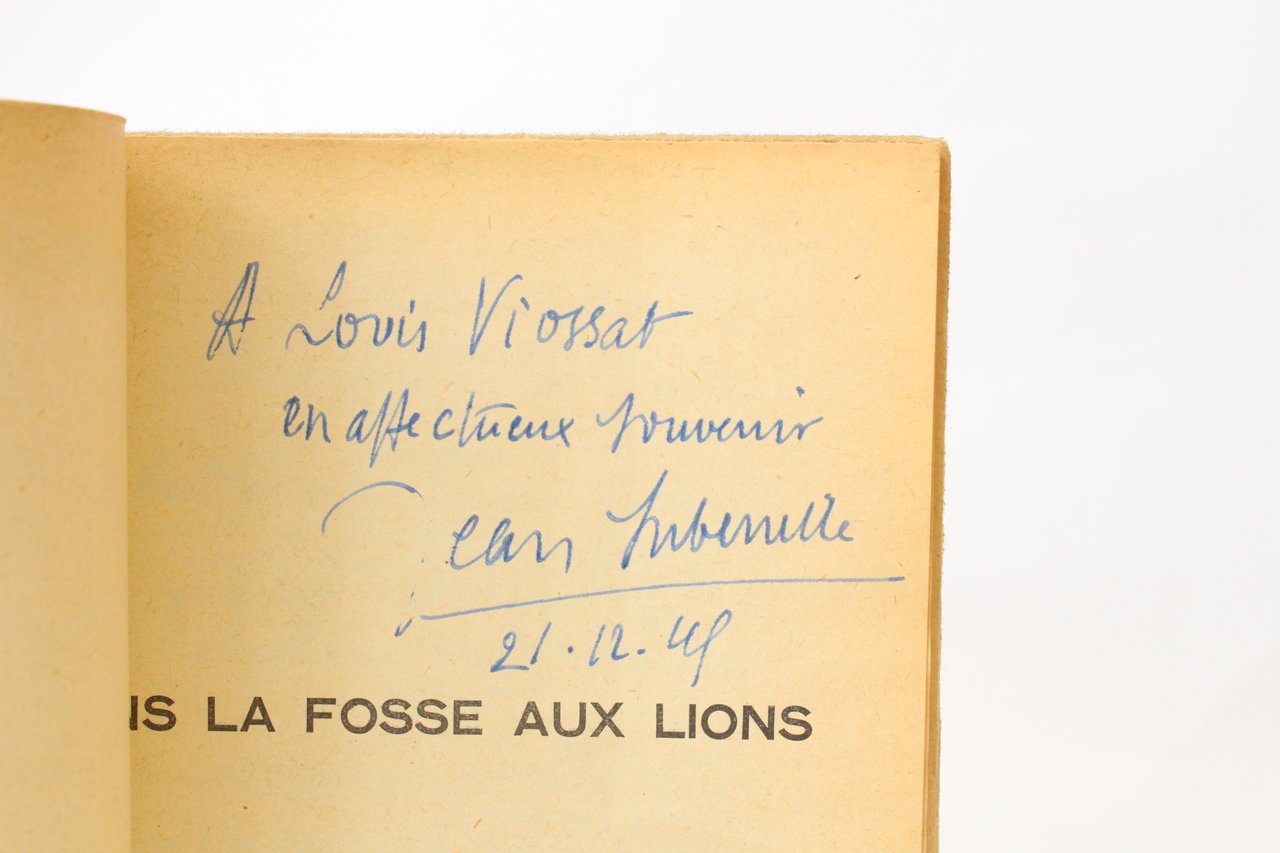 A Louis Viossat
en affectueux souvenir
Jean Suberville
21.12.45
NS LA FOSSE AUX LIONS